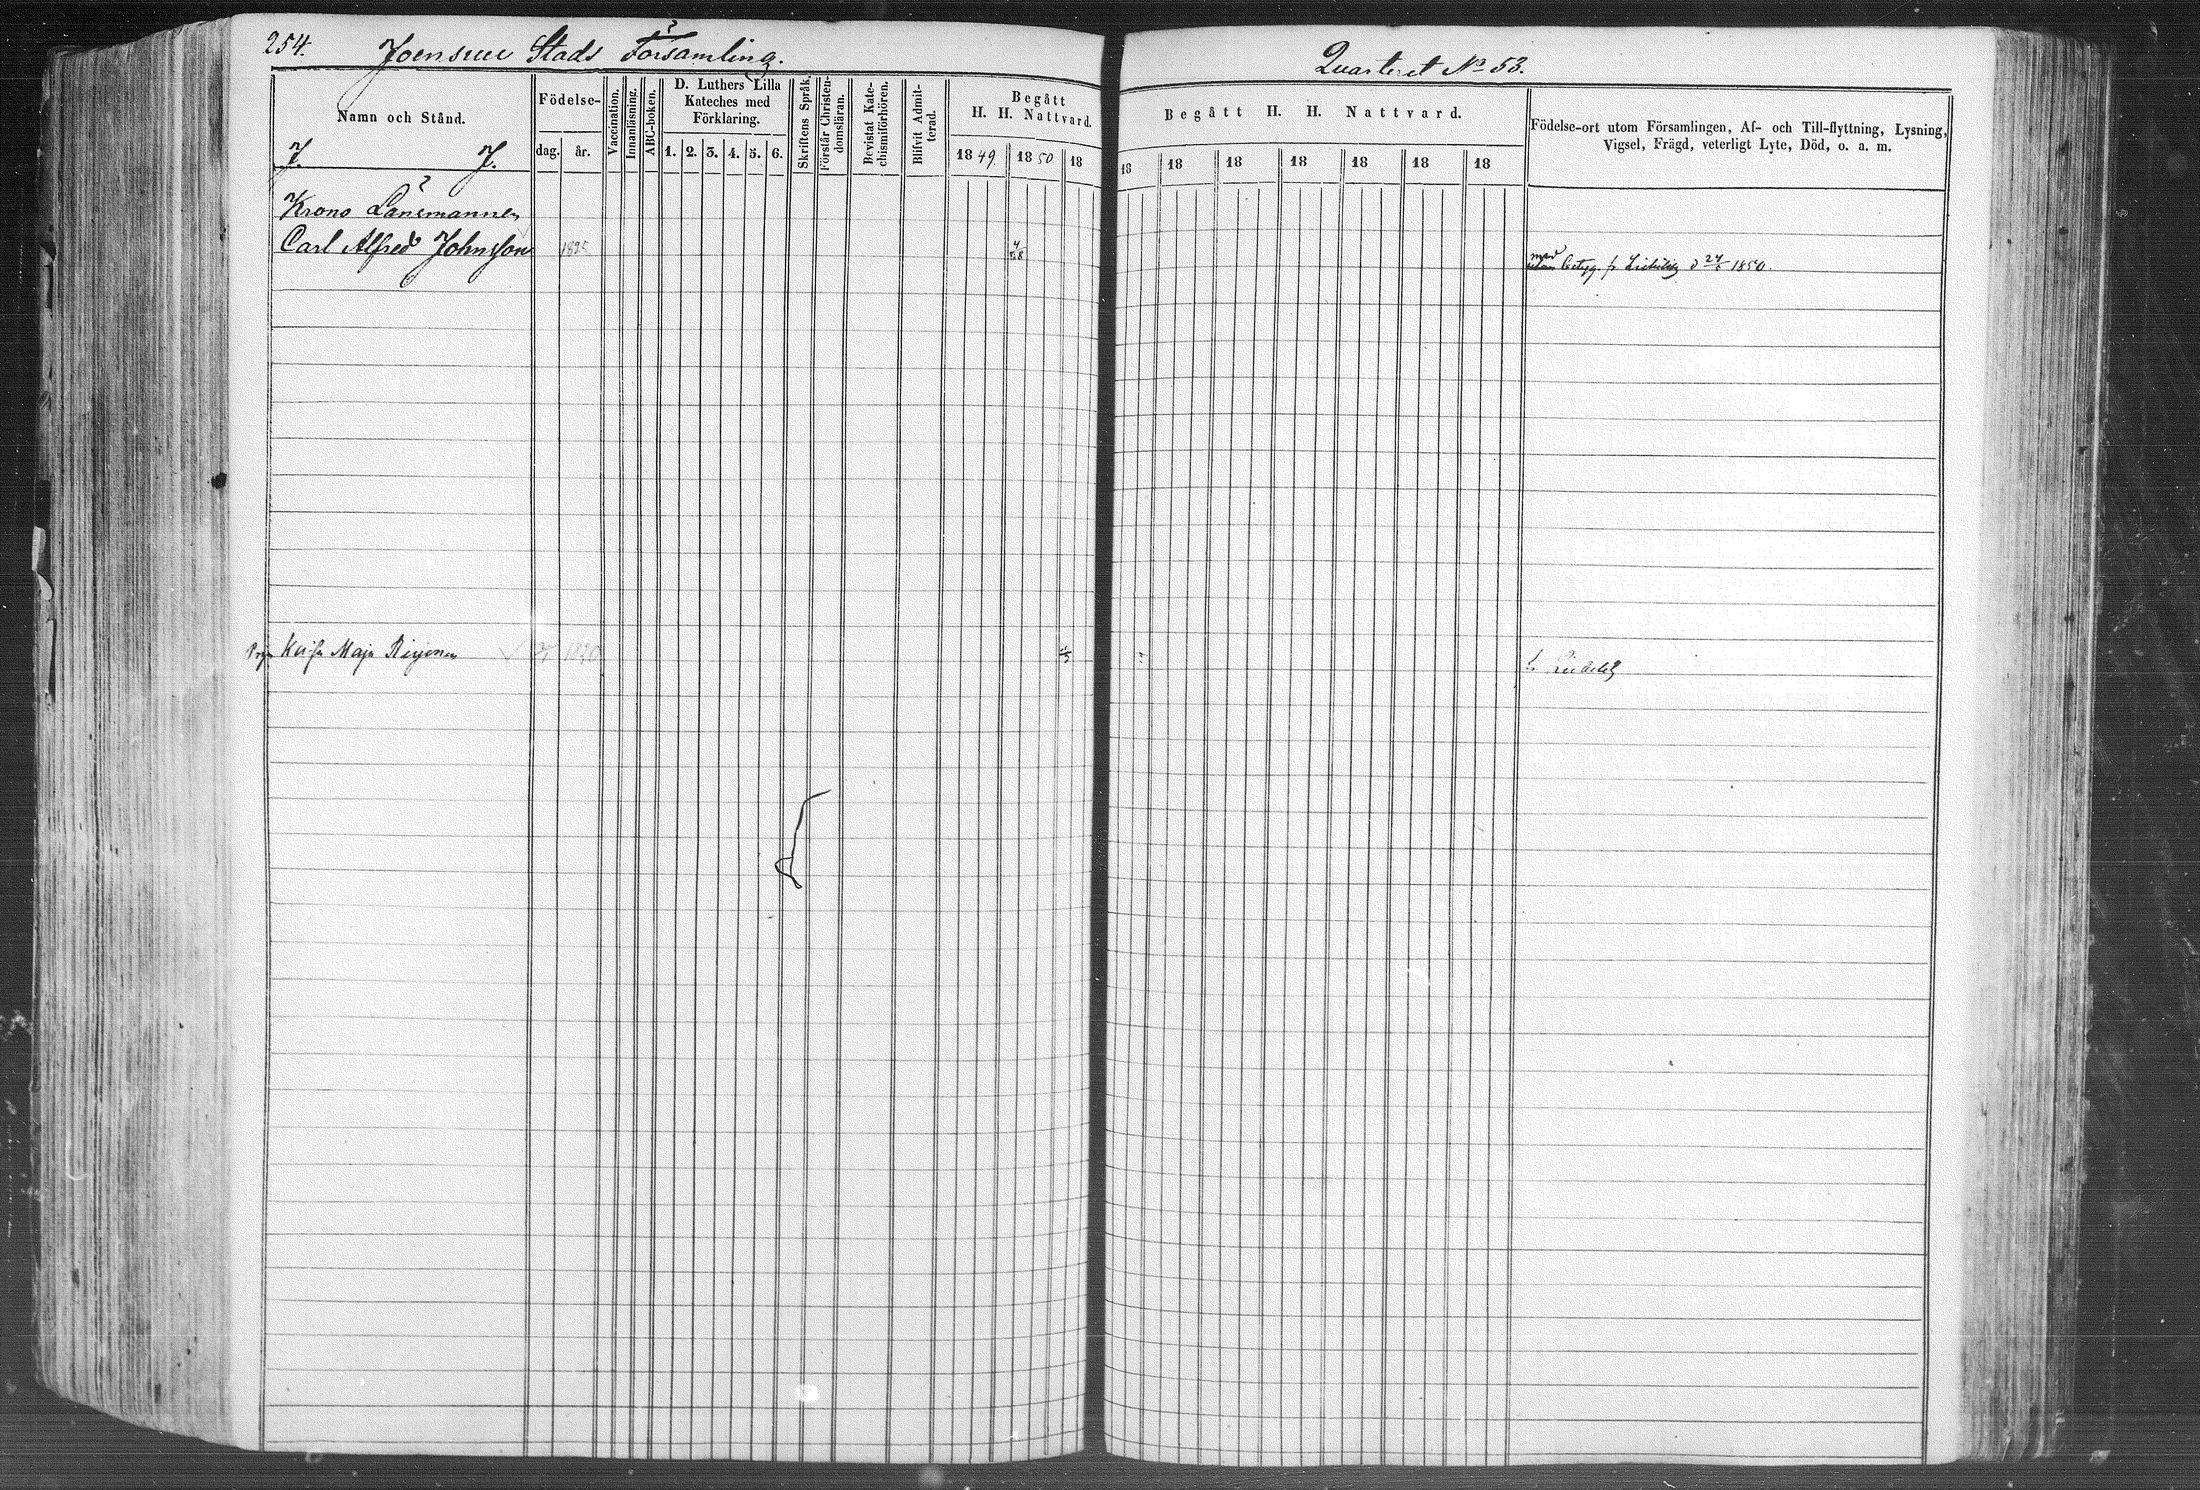 254. Joensuu Stads Församling.
Quarteret No 53.
Namn och Stånd.
Födelse-
dag. år.
Vaccination.
Innanläsning.
ABC-boken.
D. Luthers Lilla
Kateches med
Förklaring.
1. 2. 3. 4. 5. 6.
Skriftens Språk.
Förstår Christen-
domsläran.
Bevistat Kate-
chismiförhören.
Blifvit Admit-
terad.
Begått
H. H. Nattvard.
1849 1850 18
Begått H. H. Nattvard.
18 18 18 18 18 18 18
Födelse-ort utom Församlingen, Af- och Till-flyttning, Lysning,
Vigsel, Frägd, veterligt Lyte, Död, o. a. m.
J. J.
Krono Länsmannen
Carl Alfred Johnsson 1825 4/8
med
utan betyg. fr d 24/5 1850.
Maja